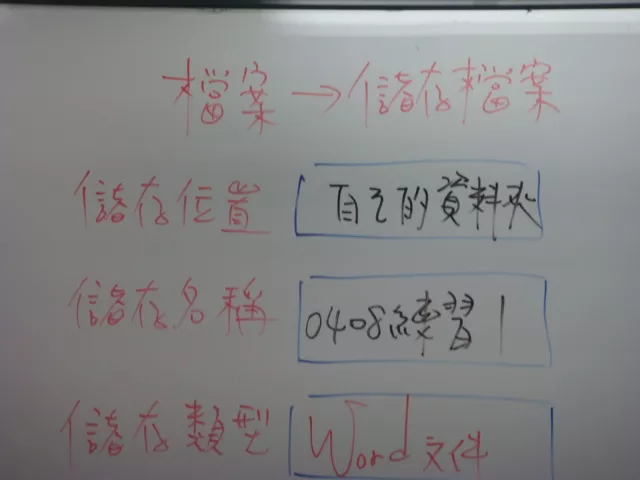 檔案→儲存檔案
儲存位置 自己的資料夾
儲存名稱 0408練習1
儲存類型 Word文件